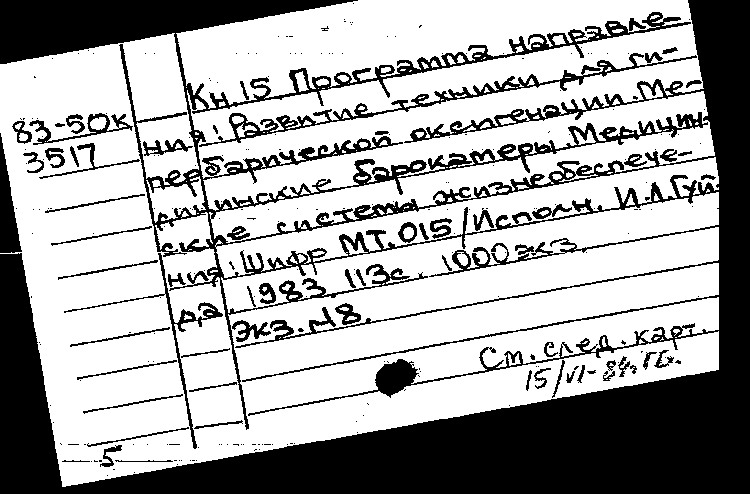 83-50к
3517
Кн.15. Программа направле-
ния: Развитие техники для ги-
пербарической оксигенации. Ме-
дицинские барокамеры. Медицин-
ские системы жизнеобеспече-
ния: Шифр МТ.015/Исполн. И.Л.Гуй-
да. 1983. 113с. 1000 экз.
Экз.№8.
См. след. карт.
15/VI-84г.
5